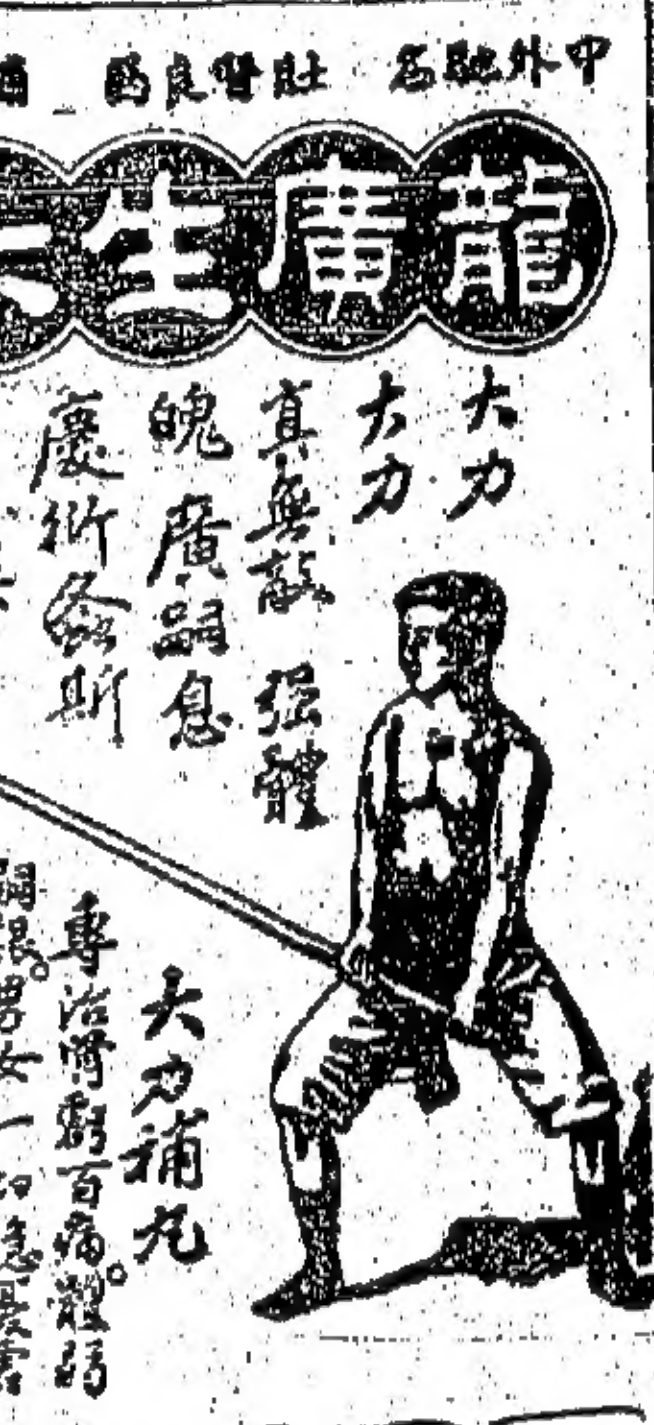 中外馳名 壯腎良
龍廣生
大力
大力
真無敵 强體
魄 廣嗣息
慶衍螽斯
大力補丸
專治腎虧百病。體弱